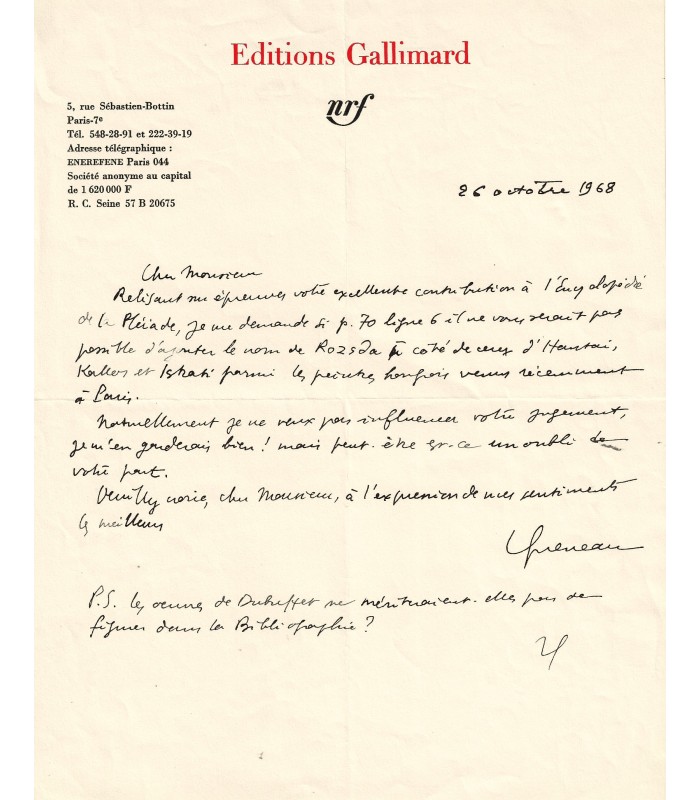 Editions Gallimard
nrf
5, rue Sébastien-Bottin
Paris-7e
Tél. 548-28-91 et 222-39-19
Adresse télégraphique :
ENEREFENE Paris 044
Société anonyme au capital
de 1 620 000 F
R. C. Seine 57 B 20675
26 octobre 1968
Cher Monsieur
Relisant sur épreuves votre excellente contribution à l'Encyclopédie
de la Pléiade, je me demande si p. 70 ligne 6 il ne vous serait pas
possible d'ajouter le nom de Rozsda à côté de ceux d'Hantaï,
Kallos et Iskati parmi les peintres hongrois venus récemment
à Paris.
Naturellement je ne veux pas influencer votre jugement,
je m'en garderais bien ! mais peut-être est-ce un oubli de
votre part.
Veuillez croire, cher Monsieur, à l'expression de mes sentiments
les meilleurs
Queneau
P.S. les œuvres de Dubuffet ne mériteraient-elles pas de
figurer dans la Bibliographie ?